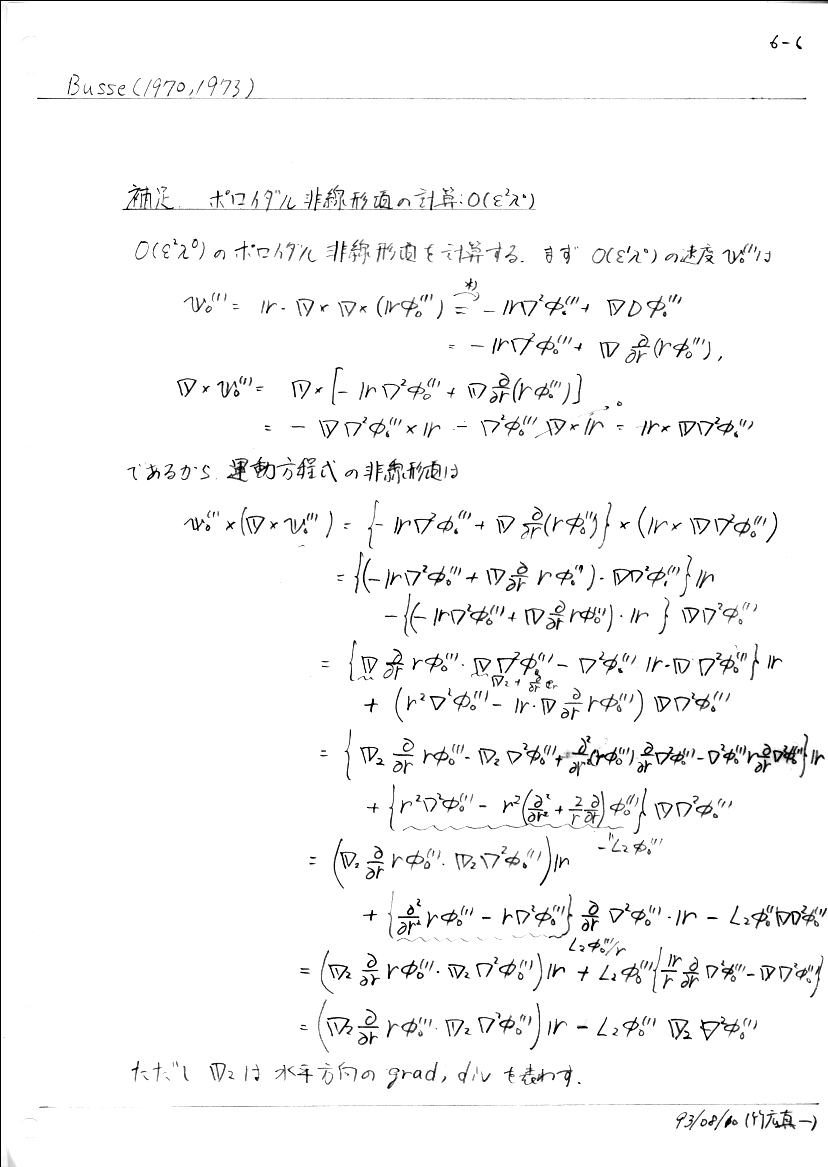 6-6
Busse(1970,1973)
補足. ポロイダル非線形項の計算:O(ε²λ⁰)
O(ε²λ⁰)のポロイダル非線形項を計算する. まず O(ε¹λ⁰)の速度 𝕧₀⁽¹⁾は
*)
𝕧₀⁽¹⁾ = 𝕣·∇×∇×(𝕣φ₀⁽¹⁾) = -𝕣∇²φ₀⁽¹⁾ + ∇Dφ₀⁽¹⁾
= -𝕣∇²φ₀⁽¹⁾ + ∇ ∂/∂r (rφ₀⁽¹⁾),
∇×𝕧₀⁽¹⁾ = ∇×[-𝕣∇²φ₀⁽¹⁾ + ∇ ∂/∂r (rφ₀⁽¹⁾)]
= -∇∇²φ₀⁽¹⁾×𝕣 - ∇²φ₀⁽¹⁾ ∇×𝕣 → 0 = 𝕣×∇∇²φ₀⁽¹⁾
であるから 運動方程式の非線形項は
𝕧₀⁽¹⁾×(∇×𝕧₀⁽¹⁾) = {-𝕣∇²φ₀⁽¹⁾ + ∇ ∂/∂r (rφ₀⁽¹⁾)}×(𝕣×∇∇²φ₀⁽¹⁾)
= {(-𝕣∇²φ₀⁽¹⁾ + ∇ ∂/∂r rφ₀⁽¹⁾)·∇∇²φ₀⁽¹⁾}𝕣
-{(-𝕣∇²φ₀⁽¹⁾ + ∇ ∂/∂r rφ₀⁽¹⁾)·𝕣} ∇∇²φ₀⁽¹⁾
= {∇ ∂/∂r rφ₀⁽¹⁾·∇∇²φ₀⁽¹⁾ - ∇²φ₀⁽¹⁾ 𝕣·∇∇²φ₀⁽¹⁾}𝕣
∇₂ + ∂/∂r 𝕖r
+ (r²∇²φ₀⁽¹⁾ - 𝕣·∇ ∂/∂r rφ₀⁽¹⁾) ∇∇²φ₀⁽¹⁾
= {∇₂ ∂/∂r rφ₀⁽¹⁾·∇₂∇²φ₀⁽¹⁾ + ∂²/∂r²(rφ₀⁽¹⁾) ∂/∂r ∇²φ₀⁽¹⁾ - ∇²φ₀⁽¹⁾ r ∂/∂r ∇²φ₀⁽¹⁾}𝕣
+ {r²∇²φ₀⁽¹⁾ - r²(∂²/∂r² + 2/r ∂/∂r)φ₀⁽¹⁾} ∇∇²φ₀⁽¹⁾
-L₂φ₀⁽¹⁾
= (∇₂ ∂/∂r rφ₀⁽¹⁾·∇₂∇²φ₀⁽¹⁾)𝕣
+ {∂²/∂r² rφ₀⁽¹⁾ - r∇²φ₀⁽¹⁾} ∂/∂r ∇²φ₀⁽¹⁾·𝕣 - L₂φ₀⁽¹⁾∇∇²φ₀⁽¹⁾
L₂φ₀⁽¹⁾/r
= (∇₂ ∂/∂r rφ₀⁽¹⁾·∇₂∇²φ₀⁽¹⁾)𝕣 + L₂φ₀⁽¹⁾{𝕣/r ∂/∂r ∇²φ₀⁽¹⁾ - ∇∇²φ₀⁽¹⁾}
= (∇₂ ∂/∂r rφ₀⁽¹⁾·∇₂∇²φ₀⁽¹⁾)𝕣 - L₂φ₀⁽¹⁾ ∇₂∇²φ₀⁽¹⁾
ただし ∇₂は 水平方向の grad, div を表わす.
93/08/10 (竹広真一)